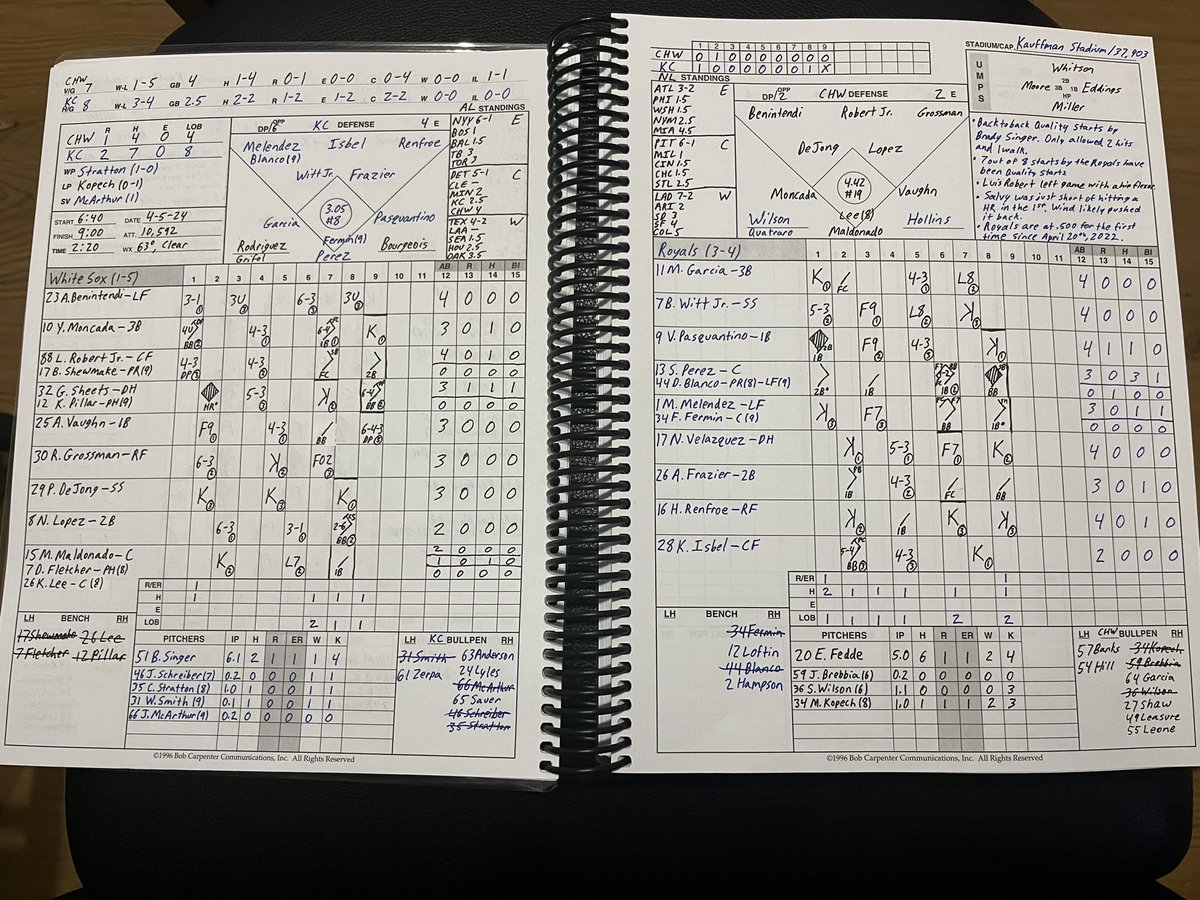 CHW V/G 7 W-L 1-5 GB 4 H 1-4 R 0-1 E 0-0 C 0-4 W 0-0 IL 1-1
KC H/G 8 W-L 3-4 GB 2.5 H 2-2 R 1-2 E 1-2 C 2-2 W 0-0 IL 0-0
R H E LOB
CHW 1 4 0 4
KC 2 7 0 8
WP Stratton (1-0)
LP Kopech (0-1)
SV McArthur (1)
START 6:40 DATE 4-5-24
FINISH 9:00 ATT. 10,592
TIME 2:20 WX 63°, Clear
DP/OPP 6 KC DEFENSE 4 E
Melendez Isbel Renfroe
Blanco(9)
Witt Jr. Frazier
3.05
#8
Garcia Pasquantino
Rodriguez Fermin(9) Bourgeois
Grifol Perez
AL STANDINGS
NYY 6-1 E
BOS 1
BAL 1.5
TB 3
TOR 3
DET 5-1 C
CLE –
MIN 2
KC 2.5
CHW 4
TEX 4-2 W
LAA –
SEA 1.5
HOU 2.5
OAK 3.5
White Sox (1-5) 1 2 3 4 5 6 7 8 9 10 11 AB 12 R 13 H 14 BI 15
23 A. Benintendi – LF 3-1 ① 3U ③ 6-3 ③ 3U ② 4 0 0 0
10 Y. Moncada – 3B 4U DP BB ② 4-3 ① 6-4 FC 1B ① K ① 3 0 1 0
88 L. Robert Jr. – CF 4-3 DP ③ 4-3 ② SB FC 2B 4 0 1 0
17 B. Shewmake – PR(9) 0 0 0 0
32 G. Sheets – DH HR 5-3 ③ K ② 6-4 BB ② 3 1 1 1
12 K. Pillar – PH(9) 0 0 0 0
25 A. Vaughn – 1B F9 ① 4-3 ① BB 6-4-3 DP ③ 3 0 0 0
30 R. Grossman – RF 6-3 ② K ② FO2 ③ 3 0 0 0
29 P. DeJong – SS K ③ K ③ K ① 3 0 0 0
8 N. Lopez – 2B 6-3 ① 3-1 ① 2-6 CS BB ② 2 0 0 0
15 M. Maldonado – C K ② L7 ② 1B 2 0 0 0
7 D. Fletcher – PH(8) 1 0 1 0
26 K. Lee – C (8) 0 0 0 0
R/ER 1
H 1 1 1 1
E
LOB 2 1 1
LH BENCH RH
17 Shewmake 26 Lee
7 Fletcher 12 Pillar
PITCHERS IP H R ER W K
51 B. Singer 6.1 2 1 1 1 4
46 J. Schreiber(7) 0.2 0 0 0 1 1
35 C. Stratton (8) 1.0 1 0 0 1 1
31 W. Smith (9) 0.1 1 0 0 1 1
66 J. McArthur (9) 0.2 0 0 0 0 0
LH KC BULLPEN RH
31 Smith 63 Anderson
61 Zerpa 24 Lyles
66 McArthur
65 Sauer
46 Schreiber
35 Stratton
©1996 Bob Carpenter Communications, Inc. All Rights Reserved
1 2 3 4 5 6 7 8 9
CHW 0 1 0 0 0 0 0 0 0
KC 1 0 0 0 0 0 0 1 X
STADIUM/CAP. Kauffman Stadium / 37,903
UMPS
Whitson
2B
Moore 3B 1B Eddings
HP
Miller
NL STANDINGS
ATL 3-2 E
PHI 1.5
WSH 1.5
NYM 2.5
MIA 4.5
PIT 6-1 C
MIL 1
CIN 1.5
CHC 1.5
STL 2.5
LAD 7-2 W
ARI 2
SD 3
SF 4
COL 5
DP/OPP 2 CHW DEFENSE 2 E
Benintendi Robert Jr. Grossman
DeJong Lopez
4.42
#19
Moncada Vaughn
Wilson Lee(8) Hollins
Quatraro Maldonado
• Back to back Quality starts by Brady Singer. Only allowed 2 hits and 1 walk.
• 7 out of 8 starts by the Royals have been Quality starts
• Luis Robert left game with a hip flexor.
• Salvy was just short of hitting a HR in the 1st. Wind likely pushed it back.
• Royals are at .500 for the first time since April 20th, 2022.
Royals (3-4) 1 2 3 4 5 6 7 8 9 10 11 AB 12 R 13 H 14 BI 15
11 M. Garcia – 3B K ① FC 4-3 ③ L8 ② 4 0 0 0
7 B. Witt Jr. – SS 5-3 ② F9 ② L8 ① K ③ 4 0 0 0
9 V. Pasquantino – 1B 2B 1B F9 ③ 4-3 ② K ① 4 1 1 0
13 S. Perez – C 2B 1B 1B ② BB 3 0 3 1
44 D. Blanco – PR(8)-LF(9) 0 1 0 0
1 M. Melendez – LF K ③ F7 ① BB 1B 3 0 1 1
34 F. Fermin – C (9) 0 0 0 0
17 N. Velazquez – DH K ① 5-3 ① F7 ① K ② 4 0 0 0
26 A. Frazier – 2B PB 1B 4-3 ② FC BB 3 0 1 0
16 H. Renfroe – RF K ② 1B K ③ K ③ 4 0 1 0
28 K. Isbel – CF 5-4 FC BB ③ 4-3 ③ K ① 2 0 0 0
R/ER 1 1
H 2 1 1 1 1 1
E
LOB 1 1 1 1 2 2
LH BENCH RH
34 Fermin
12 Loftin
44 Blanco
2 Hampson
PITCHERS IP H R ER W K
20 E. Fedde 5.0 6 1 1 2 4
59 J. Brebbia (6) 0.2 0 0 0 0 0
36 S. Wilson (6) 1.1 0 0 0 0 3
34 M. Kopech (8) 1.0 1 1 1 2 3
LH CHW BULLPEN RH
57 Banks 34 Kopech
54 Hill 59 Brebbia
64 Garcia
36 Wilson
27 Shaw
49 Leasure
55 Leone
©1996 Bob Carpenter Communications, Inc. All Rights Reserved